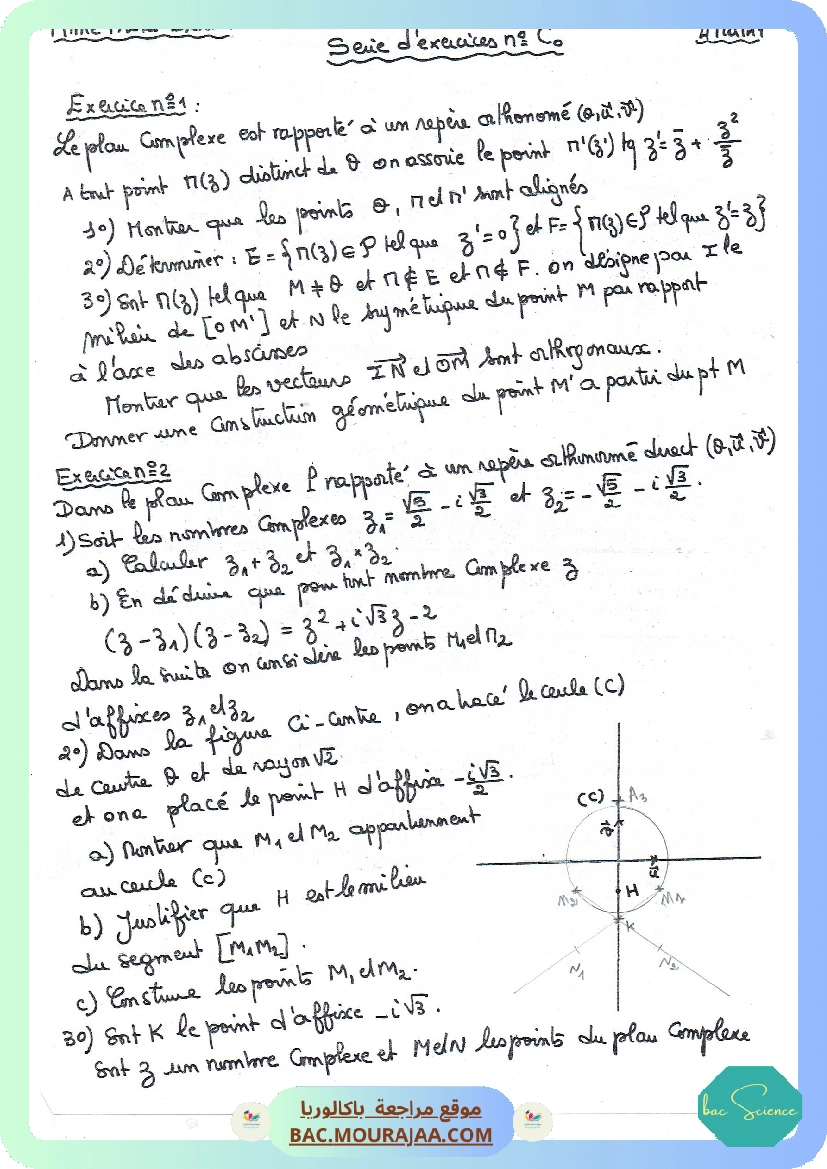 Serie d'exercices n° C0
Exercice n°1 :
Le plan Complexe est rapporté à un repère orthonomé (O, u⃗, v⃗)
A tout point M(z) distinct de O on associe le point M'(z') tq z' = z̄ + z²/z̄
1°) Montrer que les points O, M et M' sont alignés
2°) Déterminer : E = {M(z) ∈ P tel que z' = 0} et F = {M(z) ∈ P tel que z' = z}
3°) Soit M(z) tel que M ≠ O et M ∉ E et M ∉ F. on désigne par I le
milieu de [OM'] et N le symétrique du point M par rapport
à l'axe des abscisses
Montrer que les vecteurs IN⃗ et OM⃗ sont orthogonaux.
Donner une Construction géométrique du point M' a partir du pt M
Exercice n°2
Dans le plan Complexe P rapporté à un repère orthonormé direct (O, u⃗, v⃗)
1) Soit les nombres Complexes z₁ = √5/2 - i √3/2 et z₂ = - √5/2 - i √3/2 .
a) Calculer z₁ + z₂ et z₁ × z₂.
b) En déduire que pour tout nombre Complexe z
(z - z₁)(z - z₂) = z² + i√3 z - 2
Dans la suite on considère les points M₁ et M₂
d'affixes z₁ et z₂
2°) Dans la figure ci-contre, on a tracé le cercle (C)
de centre O et de rayon √2.
et on a placé le point H d'affixe - i√3/2 .
a) Montrer que M₁ et M₂ appartiennent
au cercle (C)
b) Justifier que H est le milieu
du segment [M₁M₂] .
c) Construire les points M₁ et M₂.
3°) Soit K le point d'affixe - i√3 .
Soit z un nombre Complexe et M et N les points du plan Complexe
(C)
A₃
v⃗
√2
H
M₂
M₁
K
N₁
N₂
موقع مراجعة باكالوريا
BAC.MOURAJAA.COM
bac Science